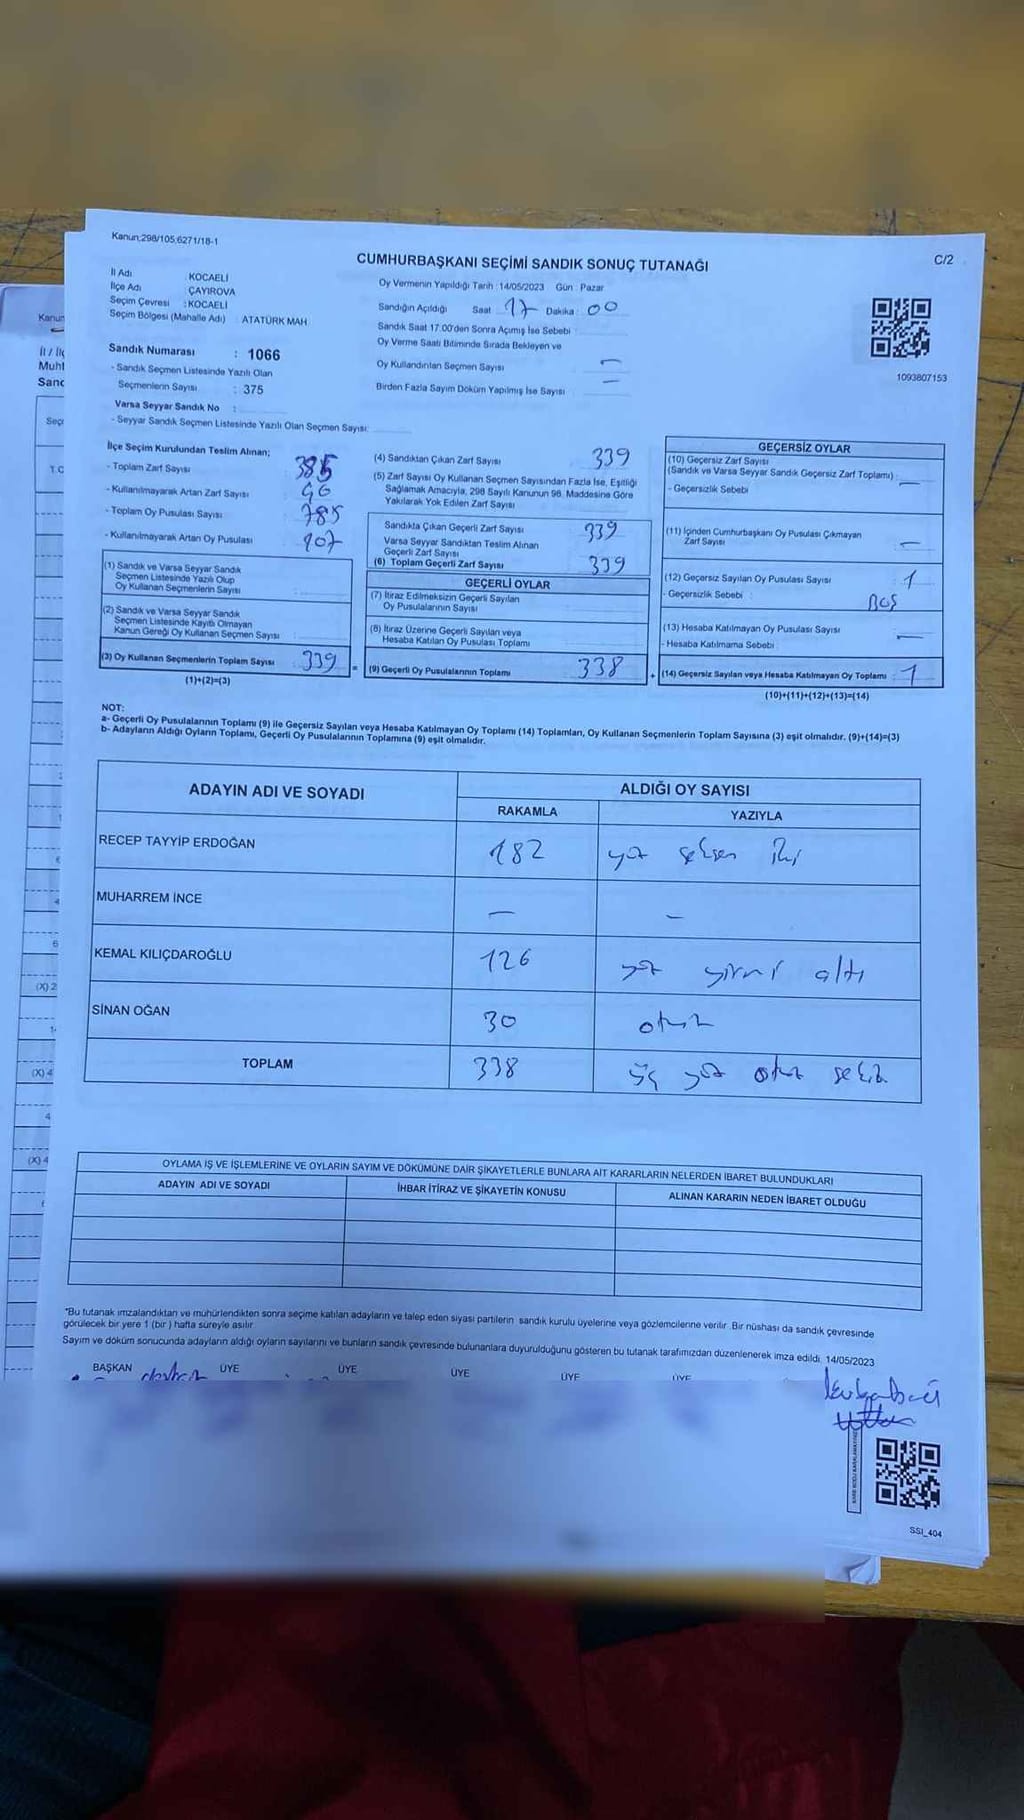 Kanun;298/105;6271/18-1
C/2
CUMHURBAŞKANI SEÇİMİ SANDIK SONUÇ TUTANAĞI
İl Adı : KOCAELİ
İlçe Adı : ÇAYIROVA
Seçim Çevresi : KOCAELİ
Seçim Bölgesi (Mahalle Adı) : ATATÜRK MAH
Sandık Numarası : 1066
- Sandık Seçmen Listesinde Yazılı Olan
Seçmenlerin Sayısı : 375
Varsa Seyyar Sandık No :
- Seyyar Sandık Seçmen Listesinde Yazılı Olan Seçmen Sayısı:
Oy Vermenin Yapıldığı Tarih : 14/05/2023 Gün : Pazar
Sandığın Açıldığı Saat : 17 Dakika : 00
Sandık Saat 17.00'den Sonra Açımış İse Sebebi :
Oy Verme Saati Bitiminde Sırada Bekleyen ve
Oy Kullandırılan Seçmen Sayısı : –
Birden Fazla Sayım Döküm Yapılmış İse Sayısı : –
1093807153
İlçe Seçim Kurulundan Teslim Alınan;
- Toplam Zarf Sayısı : 385
- Kullanılmayarak Artan Zarf Sayısı : 46
- Toplam Oy Pusulası Sayısı : 785
- Kullanılmayarak Artan Oy Pusulası : 107
(1) Sandık ve Varsa Seyyar Sandık
Seçmen Listesinde Yazılı Olup
Oy Kullanan Seçmenlerin Sayısı :
(2) Sandık ve Varsa Seyyar Sandık
Seçmen Listesinde Kayıtlı Olmayan
Kanun Gereği Oy Kullanan Seçmen Sayısı :
(3) Oy Kullanan Seçmenlerin Toplam Sayısı : 339
(1)+(2)=(3)
(4) Sandıktan Çıkan Zarf Sayısı : 339
(5) Zarf Sayısı Oy Kullanan Seçmen Sayısından Fazla İse, Eşitliği
Sağlamak Amacıyla, 298 Sayılı Kanunun 98. Maddesine Göre
Yakılarak Yok Edilen Zarf Sayısı :
Sandıkta Çıkan Geçerli Zarf Sayısı : 339
Varsa Seyyar Sandıktan Teslim Alınan
Geçerli Zarf Sayısı :
(6) Toplam Geçerli Zarf Sayısı : 339
GEÇERLİ OYLAR
(7) İtiraz Edilmeksizin Geçerli Sayılan
Oy Pusulalarının Sayısı :
(8) İtiraz Üzerine Geçerli Sayılan veya
Hesaba Katılan Oy Pusulası Toplamı :
= (9) Geçerli Oy Pusulalarının Toplamı : 338
GEÇERSİZ OYLAR
(10) Geçersiz Zarf Sayısı
(Sandık ve Varsa Seyyar Sandık Geçersiz Zarf Toplamı) : –
- Geçersizlik Sebebi :
(11) İçinden Cumhurbaşkanı Oy Pusulası Çıkmayan
Zarf Sayısı : –
(12) Geçersiz Sayılan Oy Pusulası Sayısı : 1
- Geçersizlik Sebebi : BOŞ
(13) Hesaba Katılmayan Oy Pusulası Sayısı : –
- Hesaba Katılmama Sebebi :
+ (14) Geçersiz Sayılan veya Hesaba Katılmayan Oy Toplamı : 1
(10)+(11)+(12)+(13)=(14)
NOT:
a- Geçerli Oy Pusulalarının Toplamı (9) ile Geçersiz Sayılan veya Hesaba Katılmayan Oy Toplamı (14) Toplamları, Oy Kullanan Seçmenlerin Toplam Sayısına (3) eşit olmalıdır. (9)+(14)=(3)
b- Adayların Aldığı Oyların Toplamı, Geçerli Oy Pusulalarının Toplamına (9) eşit olmalıdır.
ADAYIN ADI VE SOYADI
ALDIĞI OY SAYISI
RAKAMLA YAZIYLA
RECEP TAYYİP ERDOĞAN 182 yüz seksen iki
MUHARREM İNCE – –
KEMAL KILIÇDAROĞLU 126 yüz yirmi altı
SİNAN OĞAN 30 otuz
TOPLAM 338 üç yüz otuz sekiz
OYLAMA İŞ VE İŞLEMLERİNE VE OYLARIN SAYIM VE DÖKÜMÜNE DAİR ŞİKAYETLERLE BUNLARA AİT KARARLARIN NELERDEN İBARET BULUNDUKLARI
ADAYIN ADI VE SOYADI İHBAR İTİRAZ VE ŞİKAYETİN KONUSU ALINAN KARARIN NEDEN İBARET OLDUĞU
*Bu tutanak imzalandıktan ve mühürlendikten sonra seçime katılan adayların ve talep eden siyasi partilerin sandık kurulu üyelerine veya gözlemcilerine verilir. Bir nüshası da sandık çevresinde
görülecek bir yere 1 (bir ) hafta süreyle asılır.
Sayım ve döküm sonucunda adayların aldığı oyların sayılarını ve bunların sandık çevresinde bulunanlara duyurulduğunu gösteren bu tutanak tarafımızdan düzenlenerek imza edildi. 14/05/2023
BAŞKAN ÜYE ÜYE ÜYE ÜYE ÜYE
SSI_404